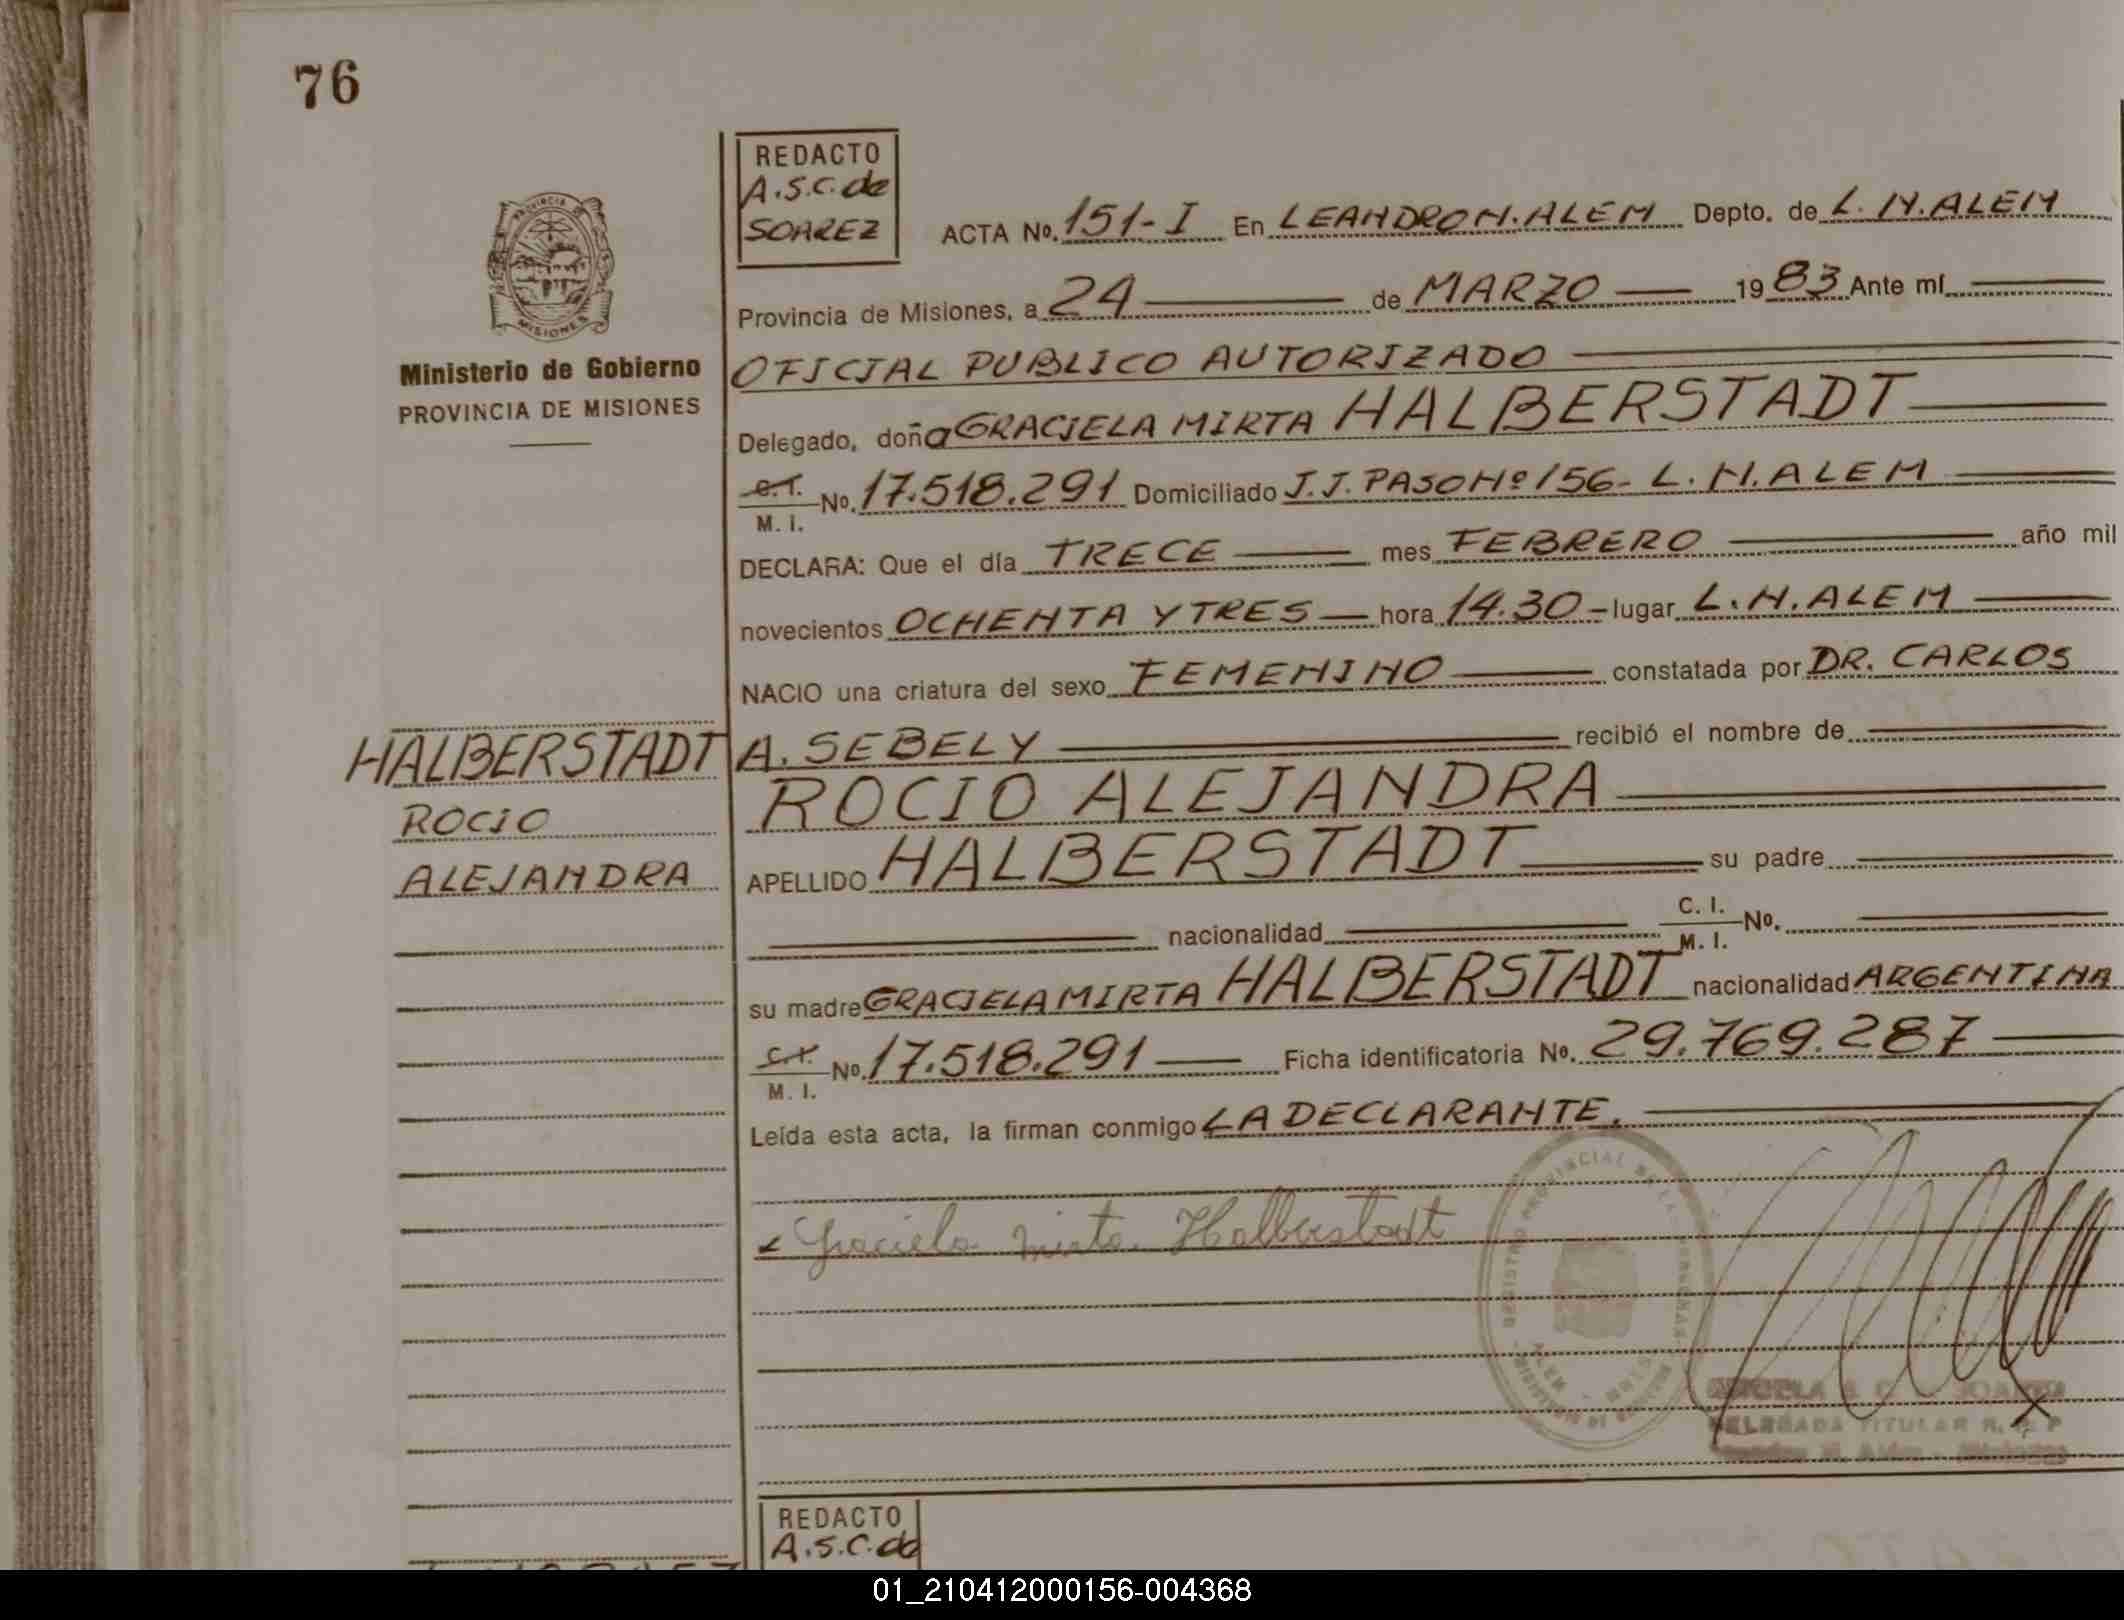 76
REDACTO
A.S.C. de
SOAREZ
ACTA No. 151-I En LEANDRO N. ALEM Depto. de L. N. ALEM
Provincia de Misiones, a 24 de MARZO 1983 Ante mí
OFICIAL PUBLICO AUTORIZADO
PROVINCIA DE
MISIONES
Ministerio de Gobierno
PROVINCIA DE MISIONES
Delegado, doña GRACIELA MIRTA HALBERSTADT
C.I. M. I. No. 17.518.291 Domiciliado J.J. PASO Nº 156- L. N. ALEM
DECLARA: Que el día TRECE mes FEBRERO año mil
novecientos OCHENTA Y TRES hora 14.30 - lugar L. N. ALEM
NACIO una criatura del sexo FEMENINO constatada por DR. CARLOS
A. SEBELY recibió el nombre de
ROCIO ALEJANDRA
APELLIDO HALBERSTADT su padre
HALBERSTADT
ROCIO
ALEJANDRA
nacionalidad C. I. M. I. No.
su madre GRACIELA MIRTA HALBERSTADT nacionalidad ARGENTINA
C.I. M. I. No. 17.518.291 Ficha identificatoria No. 29.769.287
Leída esta acta, la firman conmigo LA DECLARANTE.
Graciela Mirta Halberstadt
REGISTRO PROVINCIAL DE LAS PERSONAS
ALEM - MNES
DELEGADA TITULAR R. P. P
REDACTO
A.S.C. de
01_210412000156-004368